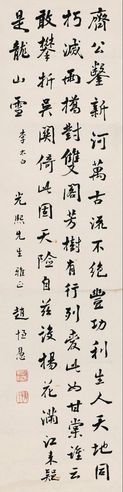 齊公鑿新河萬古流不絕豐功利生人天地同
朽滅兩橋對雙閣芳樹有行列愛此如甘棠誰云
敢攀折吳關倚此固天險自茲設
楊花滿江來疑
是龍山雪 李太白
光熙先生雅正 趙恒惕